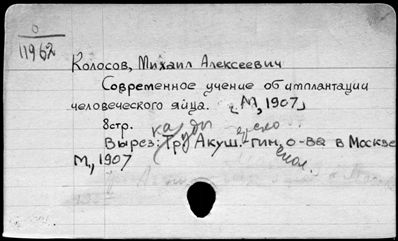 0
11962
Колосов, Михаил Алексеевич
Современное учение об имплантации
человеческого яйца. [М, 1907]
8стр.
Вырез: Тр. Акуш.-гин. о-ва в Москве
М., 1907